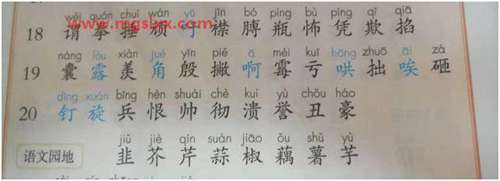 wèi quán chuí wán yǔ jīn bó píng bù píng qī qiā
18 谓 拳 捶 顽 予 襟 膊 瓶 怖 凭 欺 掐
www.mgsbzx.com
náng lòu xiàn jué yīn piē ā méi kuī hōng zhuō āi zá
19 囊 露 羡 角 殷 撇 啊 霉 亏 哄 拙 唉 砸
dīng xuán bīng hèn shuài chè kuì yù chǒu háo
20 钉 旋 兵 恨 帅 彻 溃 誉 丑 豪
jiǔ jiè qín suàn jiāo ǒu shǔ yù
语文园地 韭 芥 芹 蒜 椒 藕 薯 芋